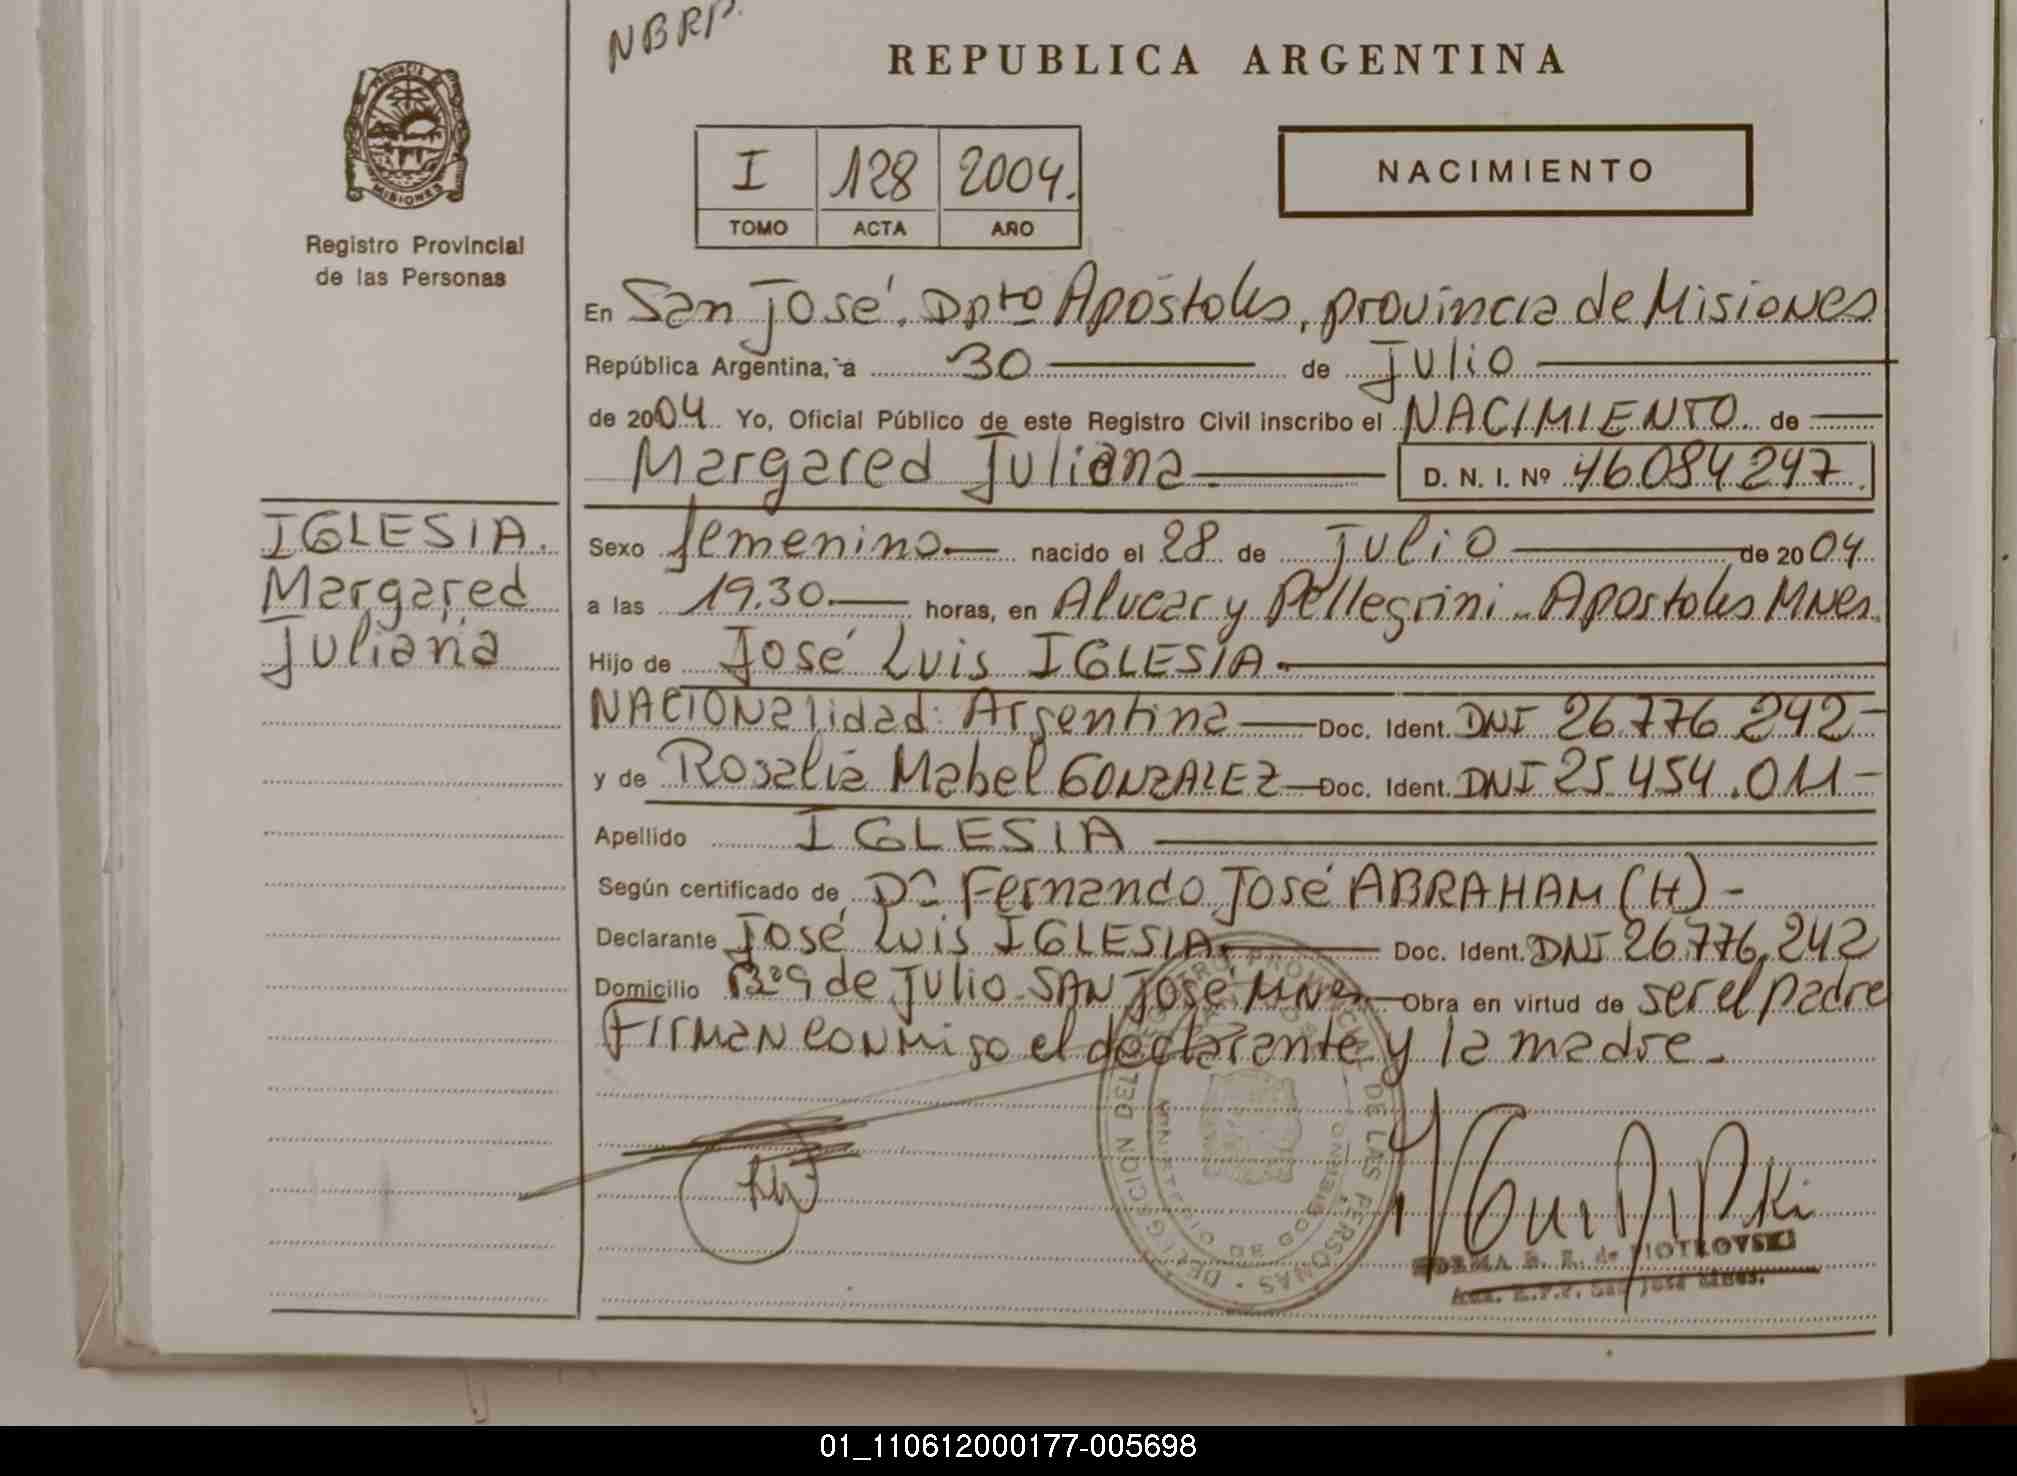 NBRP.
REPUBLICA ARGENTINA
PROVINCIA DE MISIONES
Registro Provincial
de las Personas
I 128 2004.
TOMO ACTA AÑO
NACIMIENTO
En San José. Dpto Apóstoles, provincia de Misiones
República Argentina, a 30 de Julio
de 2004 Yo, Oficial Público de este Registro Civil inscribo el NACIMIENTO de
Margared Juliana D. N. I. Nº 46.084.247.
IGLESIA.
Margared
Juliana
Sexo femenino nacido el 28 de Julio de 2004
a las 19.30 horas, en Alvear y Pellegrini - Apostoles MNes.
Hijo de José Luis IGLESIA.
NACIONalidad: Argentina Doc. Ident. DNI 26.776.242-
y de Rosalia Mabel GONZALEZ Doc. Ident. DNI 25.454.011-
Apellido IGLESIA
Según certificado de Dn Fernando José ABRAHAM (H) -
Declarante José Luis IGLESIA Doc. Ident. DNI 26.776.242
Domicilio Bº 9 de Julio SAN José MNes Obra en virtud de ser el padre
Firman conmigo el declarante y la madre.
REGISTRO PROVINCIAL DE LAS PERSONAS
MINISTERIO DE GOBIERNO
DELEGACION
de PIOTROVSKI
R.P.P. San José
01_110612000177-005698